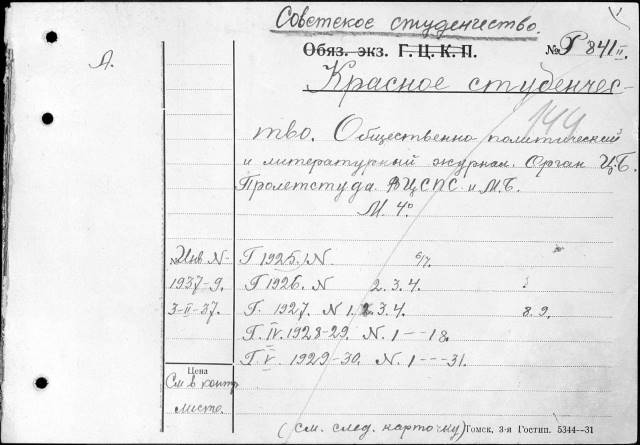 Советское студенчество.
Обяз. экз. Г. Ц. К. П. №Р 841 II.
А.
Красное студенчес-
144
тво. Общественно-политический
и литературный журнал. Орган Ц.Б.
Пролетстуда ВЦСПС и М.Б.
М. 4°
№Инв N- Г 1925. N. 6/7.
1937-9. Г 1926. N 2. 3. 4.
3-II-37. Г. 1927. N 1. 2. 3. 4. 8. 9.
Г. IV. 1928-29. N. 1 - - 18.
Г. V. 1929-30. N. 1 - - - 31.
Цена
См в контр
листе.
(см. след. карточку) Гомск, 3-я Гостип. 5344—31